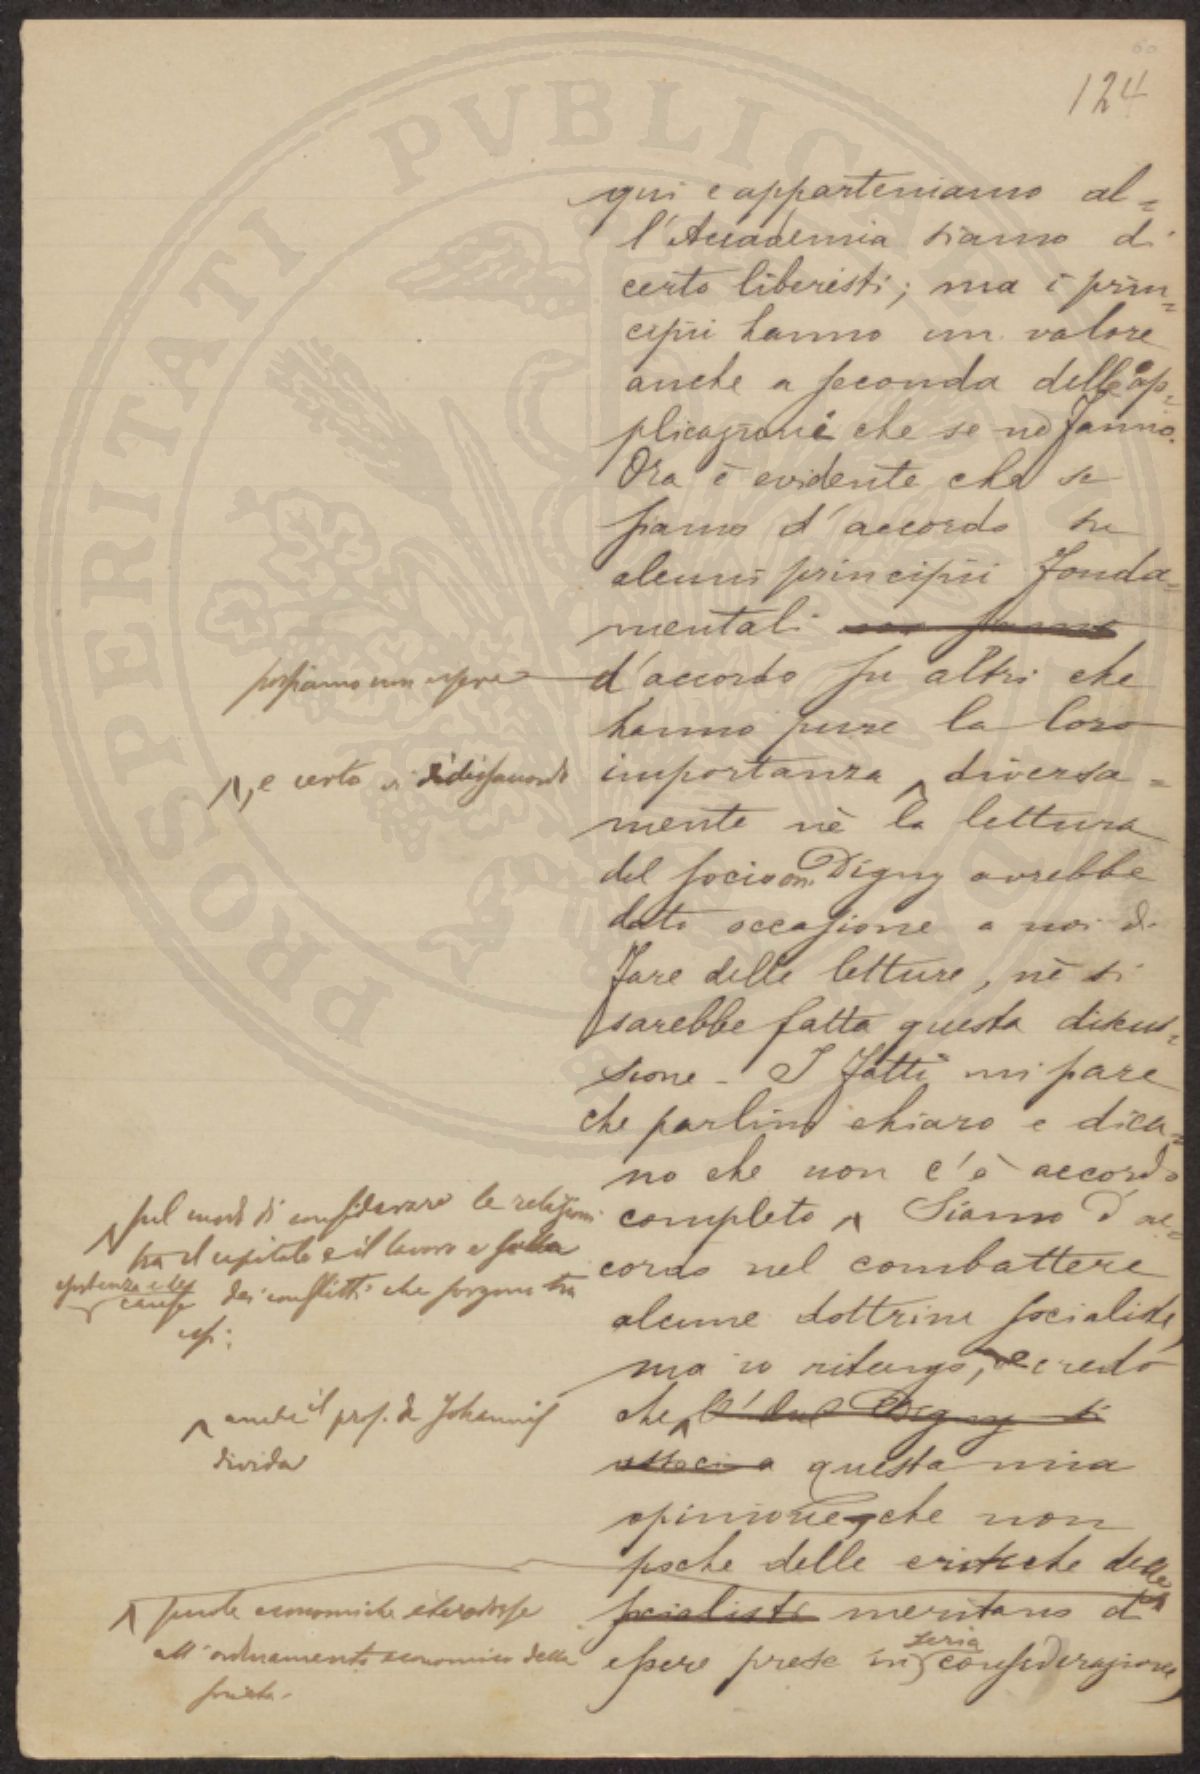 60
124
qui e apparteniamo al=
l'Accademia siamo di
certo liberisti; ma i prin=
cipii hanno un valore
anche a seconda delle ap=
plicazioni che se ne fanno.
Ora è evidente che se
siamo d'accordo su
alcuni principii fonda=
mentali non siamo
possiamo non essere
d'accordo su altri che
hanno pure la loro
importanza ^ diversa=
^, e certo vi è disaccordo
mente nè la lettura
del socio on. Digny avrebbe
dato occasione a noi di
fare delle letture, nè si
sarebbe fatta questa discus=
sione - I fatti mi pare
che parlino chiaro e dica=
no che non c'è accordo
completo ^ Siamo d'ac=
^ sul modo di considerare le relazioni
tra il capitale e il lavoro e sulla
esistenza e le cause dei conflitti che sorgono tra
essi;
cordo nel combattere
alcune dottrine socialiste,
ma io ritengo, e credo
che ^ l' Digny si
^ anche il prof. de Johannis
divida
associa questa mia
opinione, che non
poche delle critiche delle
socialisti meritano d'
^ scuole economiche eterodosse
all'ordinamento economico della
società.
essere prese in seria considerazione,
PROSPERITATI PVBLICAE